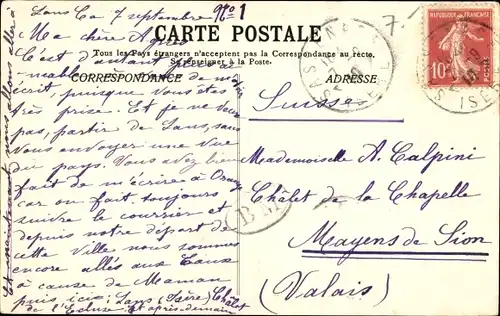 Lans Ce 7 septembre No 1
CARTE POSTALE
Tous les Pays étrangers n'acceptent pas la Correspondance au recto.
Se renseigner à la Poste.
CORRESPONDANCE
ADRESSE
Ma chère Agnès
C'est d'autant plus
aimable à de m'a
écrit, puisque vous êtes
très prise. Et je ne veux
pas, partir de Lans, sans
vous envoyer une vue
du pays. Vous avez bien
fait de m'écrire à Orange
car on fait toujours
suivre le courrier et
depuis notre départ de
cette Ville nous sommes
encore allés aux Eaux
à cause de Maman
puis ici: Lans (Isère) Châlet
de l'Ecluse. Et après-demain
Et maintenant nous allons aller à
REPUBLIQUE FRANÇAISE
10c
POSTES
SASSENAGE
ISERE
Suisse
Mademoiselle A. Calpini
Châlet de la Chapelle
Mayens de Sion
(Valais)